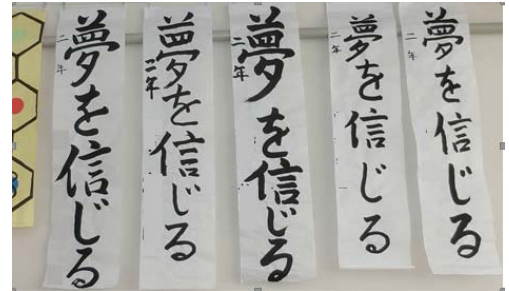 夢を信じる
二年
夢を信じる
二年
夢を信じる
二年
夢を信じる
二年
夢を信じる
二年